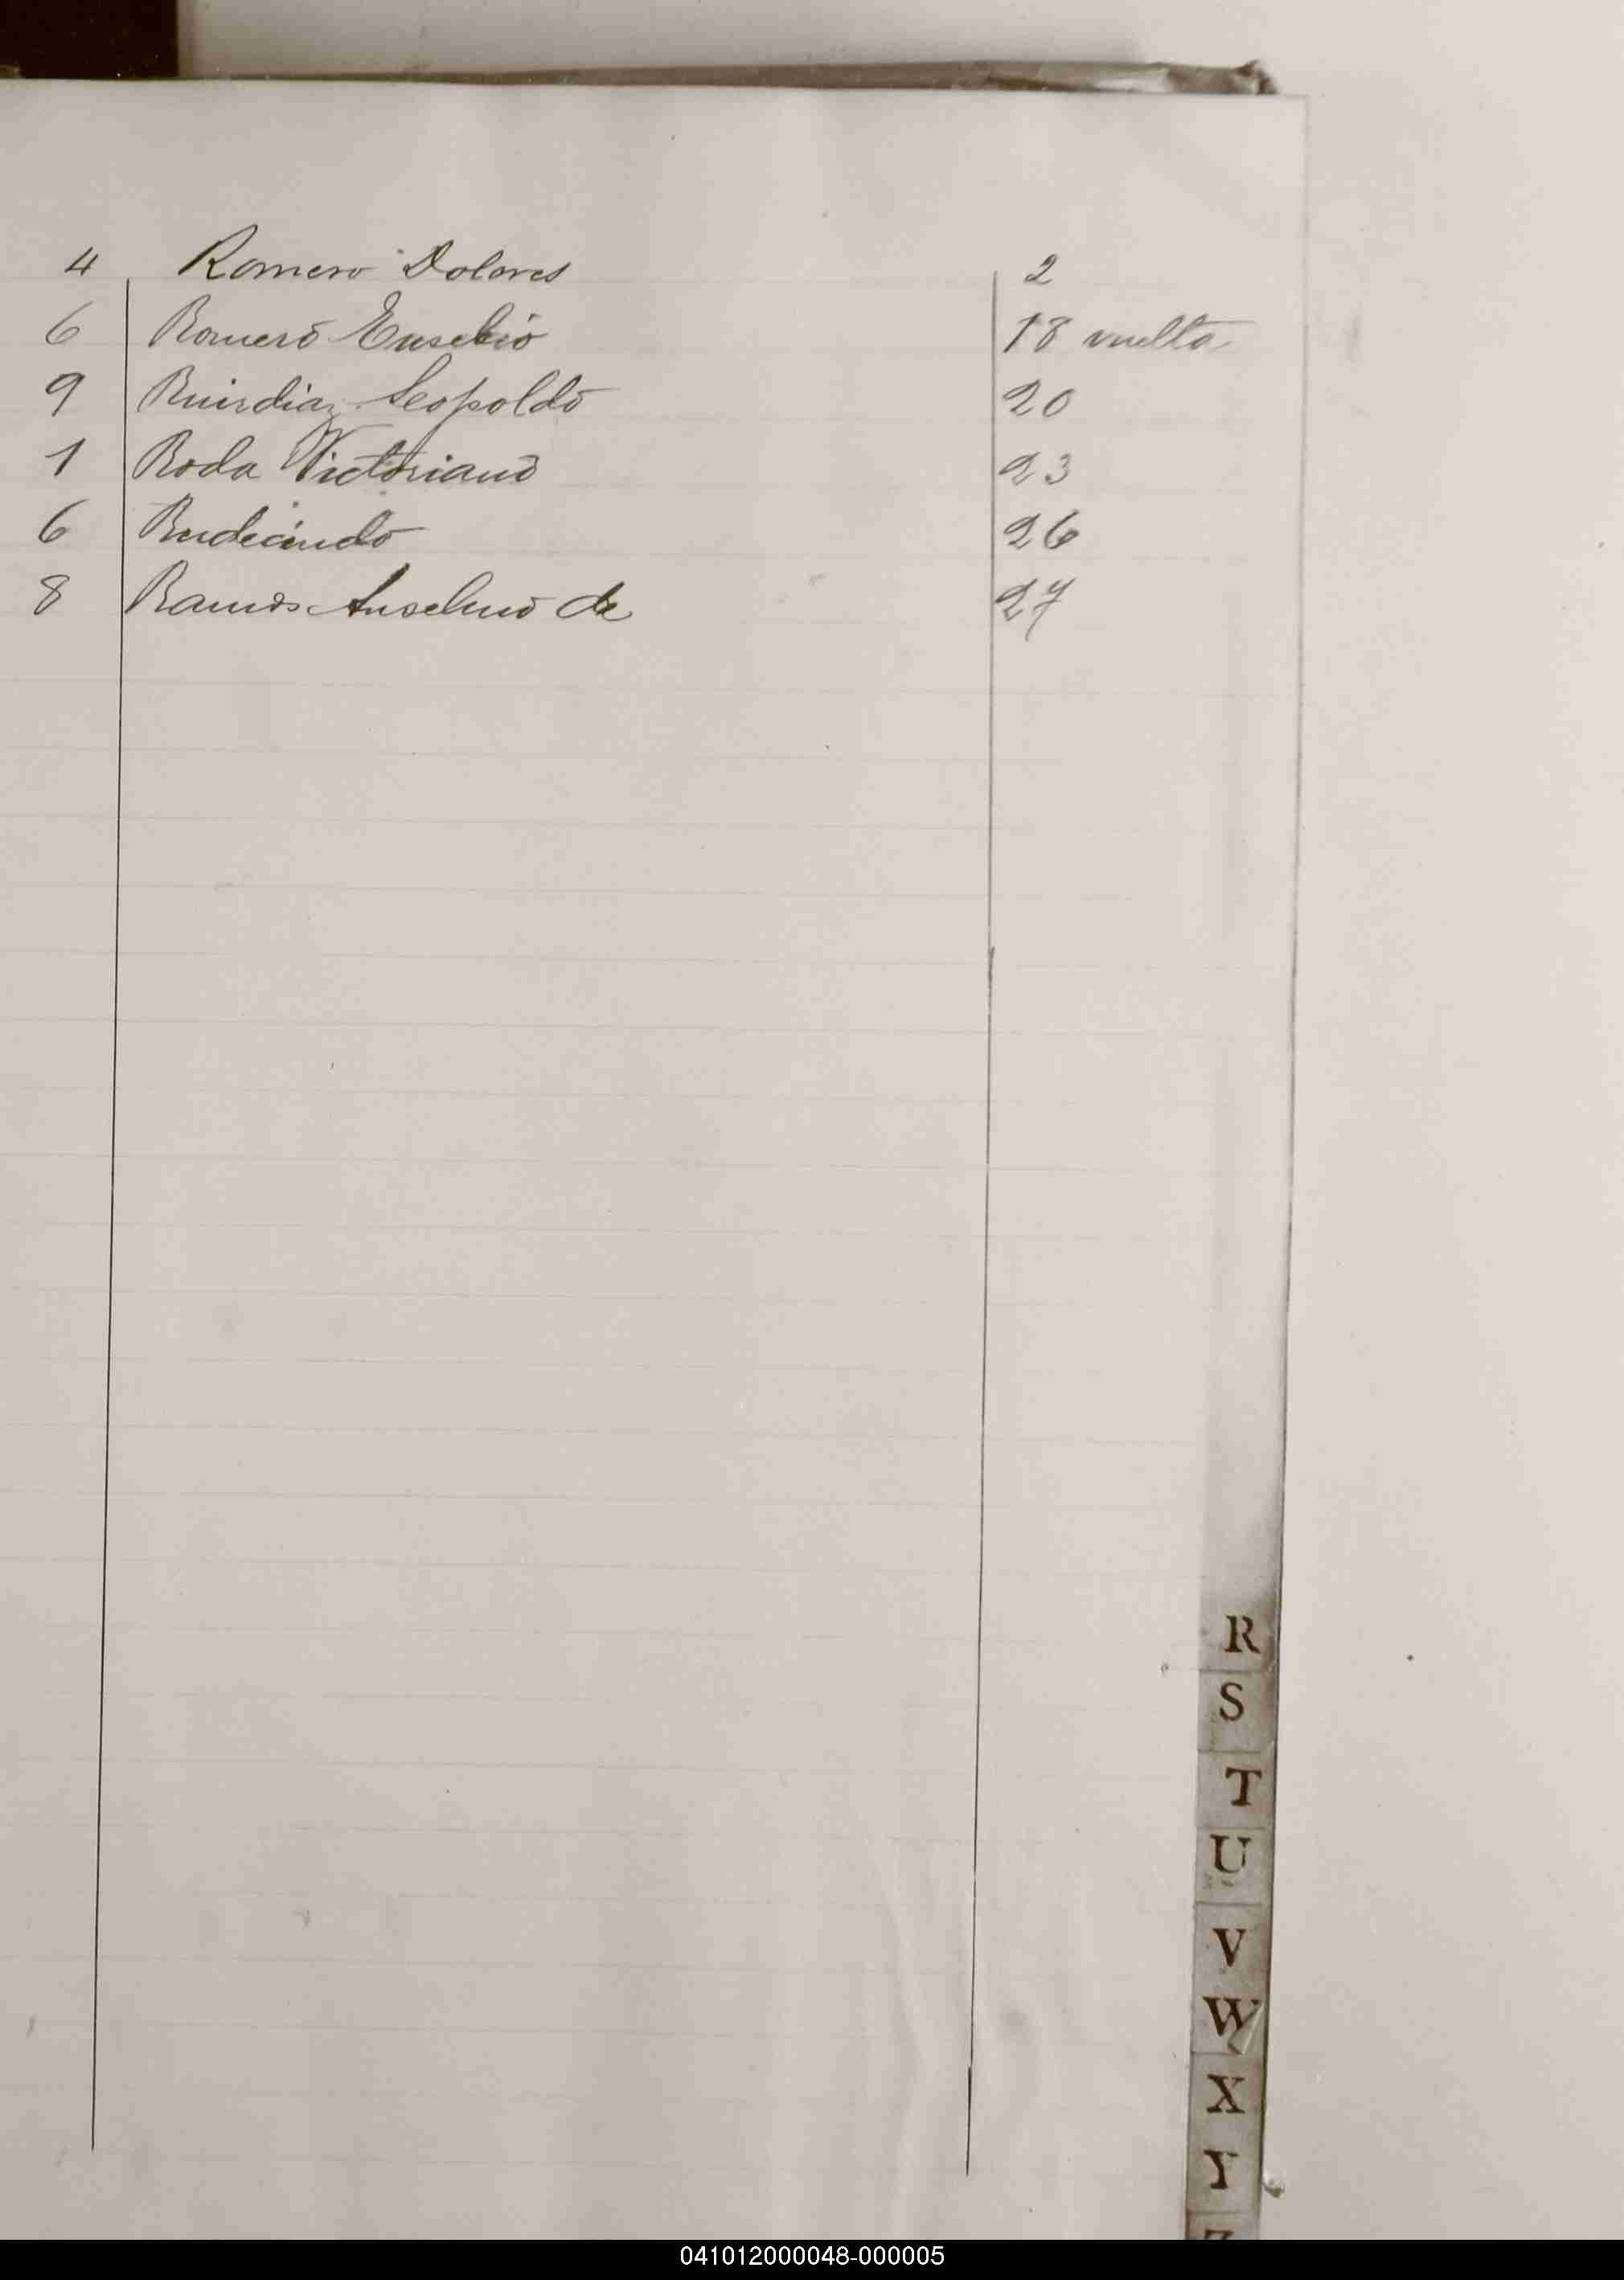 4 Romero Dolores 2
6 Romero Eusebio 18 vuelta
9 Ruirdiaz Leopoldo 20
1 Roda Victoriano 23
6 Rudecindo 26
8 Ramos Anselmo de 27
R
S
T
U
V
W
X
Y
Z
041012000048-000005